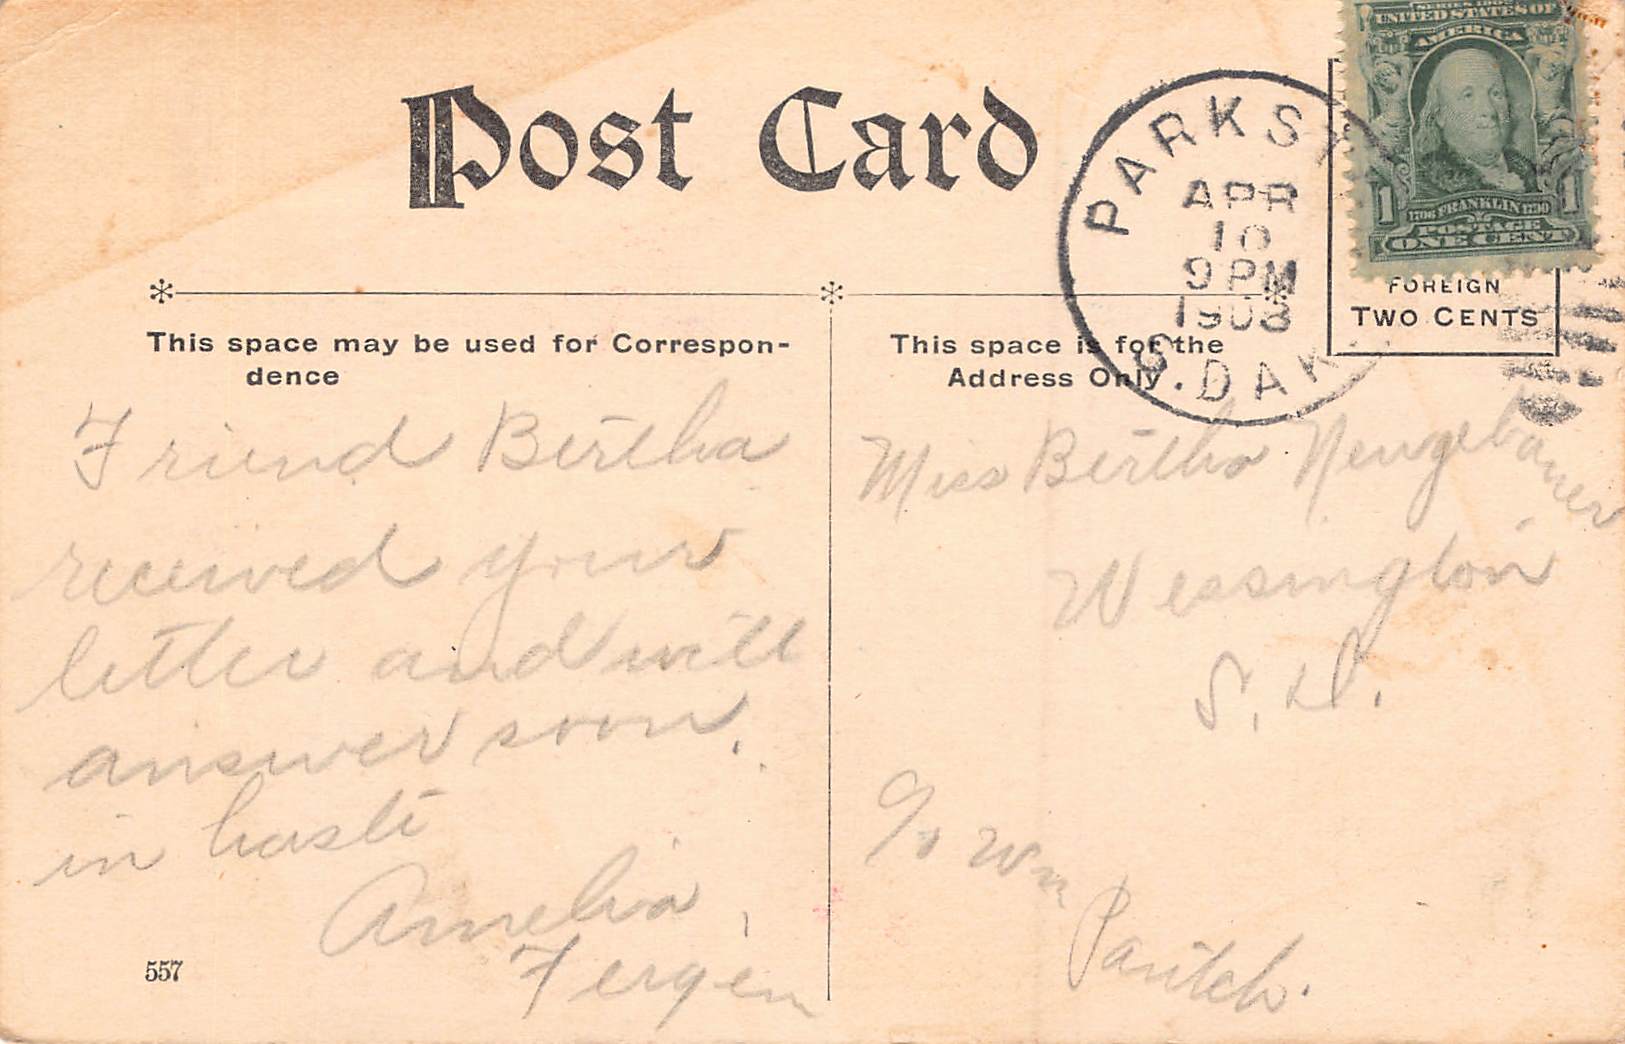 Post Card
SERIES 1902
UNITED STATES OF
AMERICA
1 1706 FRANKLIN 1790 1
POSTAGE
ONE CENT
PARKST
APR
10
9 PM
1908
S. DAK.
FOREIGN
TWO CENTS
This space may be used for Correspon-
dence
This space is for the
Address Only.
Friend Bertha
received your
letter and will
answer soon.
in haste
Amelia
Fergen
557
Miss Bertha Neugebauer
Wessington
S. D.
c/o Wm
Pautch.